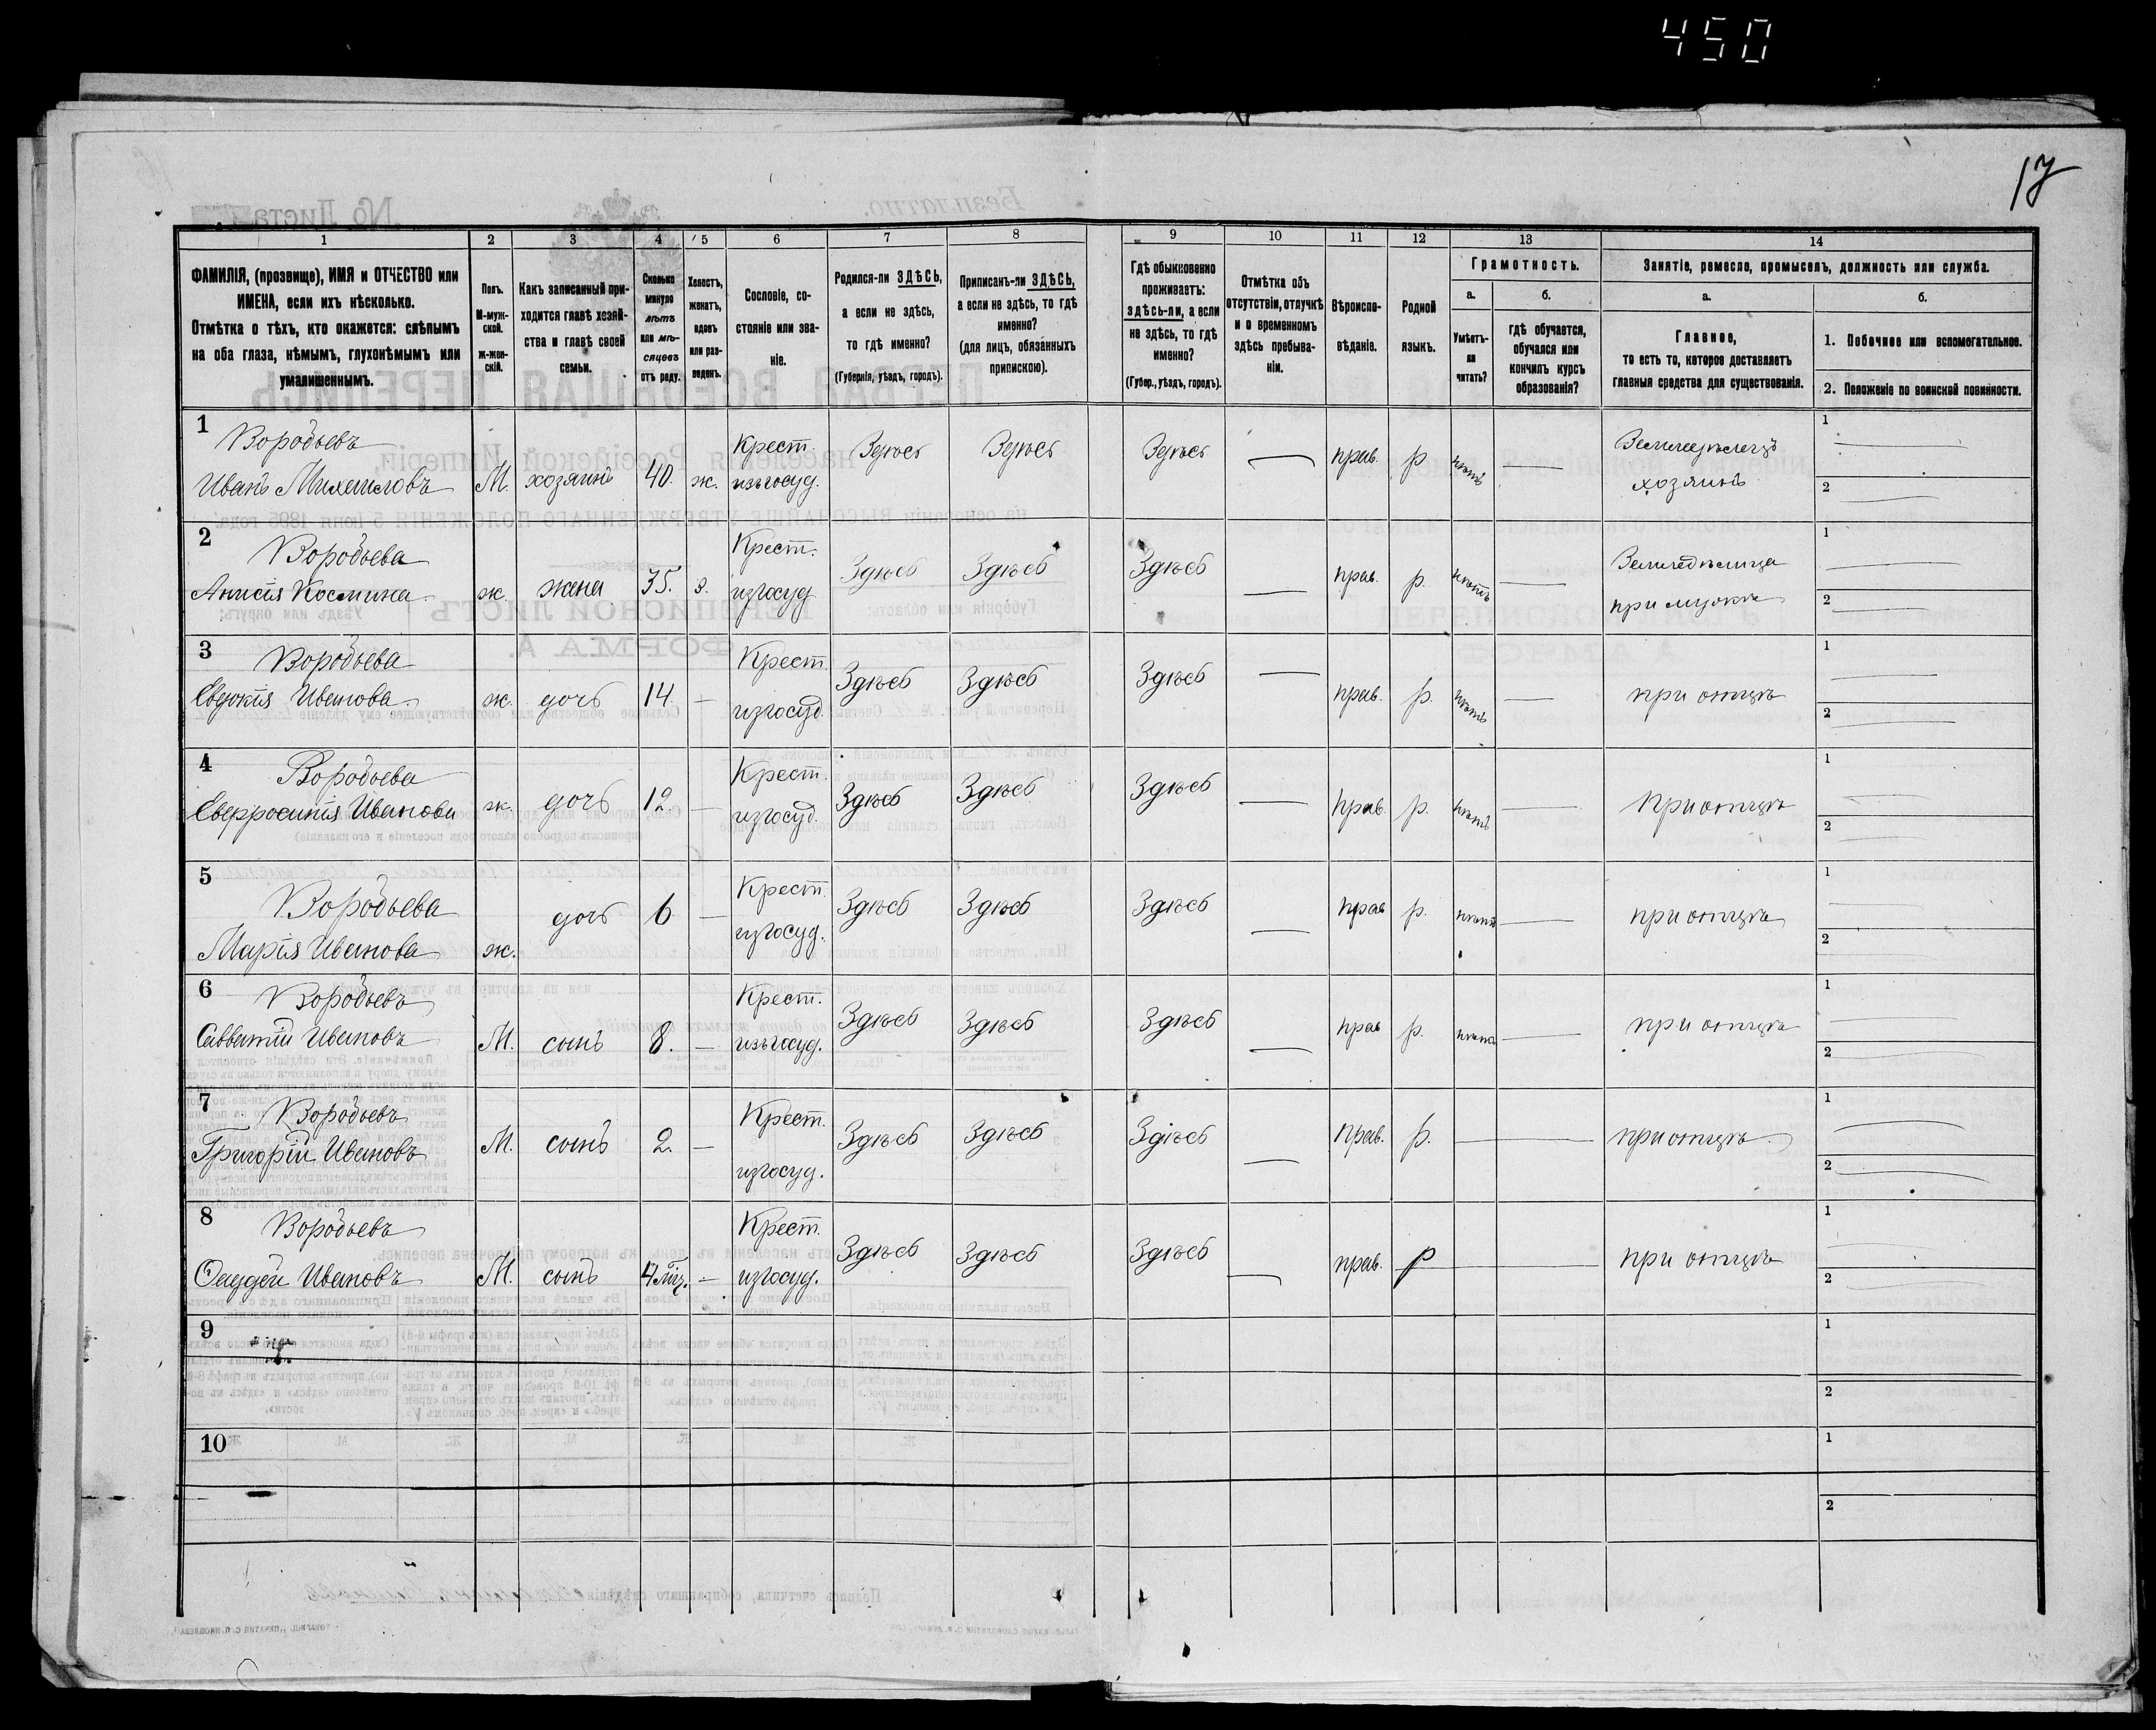 450
17
1
2
3
4
5
6
7
8
9
10
11
12
13
14
ФАМИЛІЯ, (прозвище), ИМЯ и ОТЧЕСТВО или
ИМЕНА, если ихъ нѣсколько.
Отмѣтка о тѣхъ, кто окажется: слѣпымъ
на оба глаза, нѣмымъ, глухонѣмымъ или
умалишеннымъ.
Полъ.
М-муж-
ской.
ж-жен-
скій.
Какъ записанный при-
ходится главѣ хозяй-
ства и главѣ своей
семьи.
Сколько
минуло
лѣтъ
или мѣ-
сяцевъ
отъ роду.
Холостъ,
женатъ,
вдовъ
или раз-
веденъ.
Сословіе, со-
стояніе или зва-
ніе.
Родился-ли ЗДѢСЬ,
а если не здѣсь,
то гдѣ именно?
(Губернія, уѣздъ, городъ).
Приписанъ-ли ЗДѢСЬ,
а если не здѣсь, то гдѣ
именно?
(для лицъ, обязанныхъ
припискою).
Гдѣ обыкновенно
проживаетъ:
ЗДѢСЬ-ли, а если
не здѣсь, то гдѣ
именно?
(Губер., уѣздъ, городъ).
Отмѣтка объ
отсутствіи, отлучкѣ
и о временномъ
здѣсь пребыва-
ніи.
Вѣроиспо-
вѣданіе.
Родной
языкъ.
Грамотность.
а.
Умѣетъ-
ли
читать?
б.
гдѣ обучается,
обучался или
кончилъ курсъ
образованія?
Занятіе, ремесло, промыселъ, должность или служба.
а.
Главное,
то есть то, которое доставляетъ
главныя средства для существованія.
б.
1. Побочное или вспомогательное.
2. Положеніе по воинской повинности.
1
Воробьевъ
Иванъ Михаиловъ М. хозяинъ 40. ж. Крест. изъ госуд. Здѣсь Здѣсь Здѣсь — прав. р. нѣтъ — Земледѣлецъ
хозяинъ
1
2
2
Воробьева
Анисія Космина ж. жена 35. з. Крест. изгосуд. Здѣсь Здѣсь Здѣсь — прав. р. нѣтъ — Земледѣлица
при мужѣ
1
2
3
Воробьева
Евдокія Иванова ж. дочь 14. — Крест. изгосуд. Здѣсь Здѣсь Здѣсь — прав. р. нѣтъ — при отцѣ
1
2
4
Воробьева
Евфросинія Иванова ж. дочь 12. — Крест. изгосуд. Здѣсь Здѣсь Здѣсь — прав. р. нѣтъ — при отцѣ
1
2
5
Воробьева
Марія Иванова ж. дочь 6 — Крест. изгосуд. Здѣсь Здѣсь Здѣсь — прав р. нѣтъ — при отцѣ
1
2
6
Воробьевъ
Савватій Ивановъ М. сынъ 8. — Крест. изъ госуд. Здѣсь Здѣсь Здѣсь — прав р. нѣтъ — при отцѣ
1
2
7
Воробьевъ
Григорій Ивановъ М. сынъ 2. — Крест. изгосуд. Здѣсь Здѣсь Здѣсь — прав. р. — при отцѣ
1
2
8
Воробьевъ
Ѳаддей Ивановъ М. сынъ 4 мѣц. — Крест. изгосуд. Здѣсь Здѣсь Здѣсь — прав. р — при отцѣ
1
2
9
1
2
10
1
2